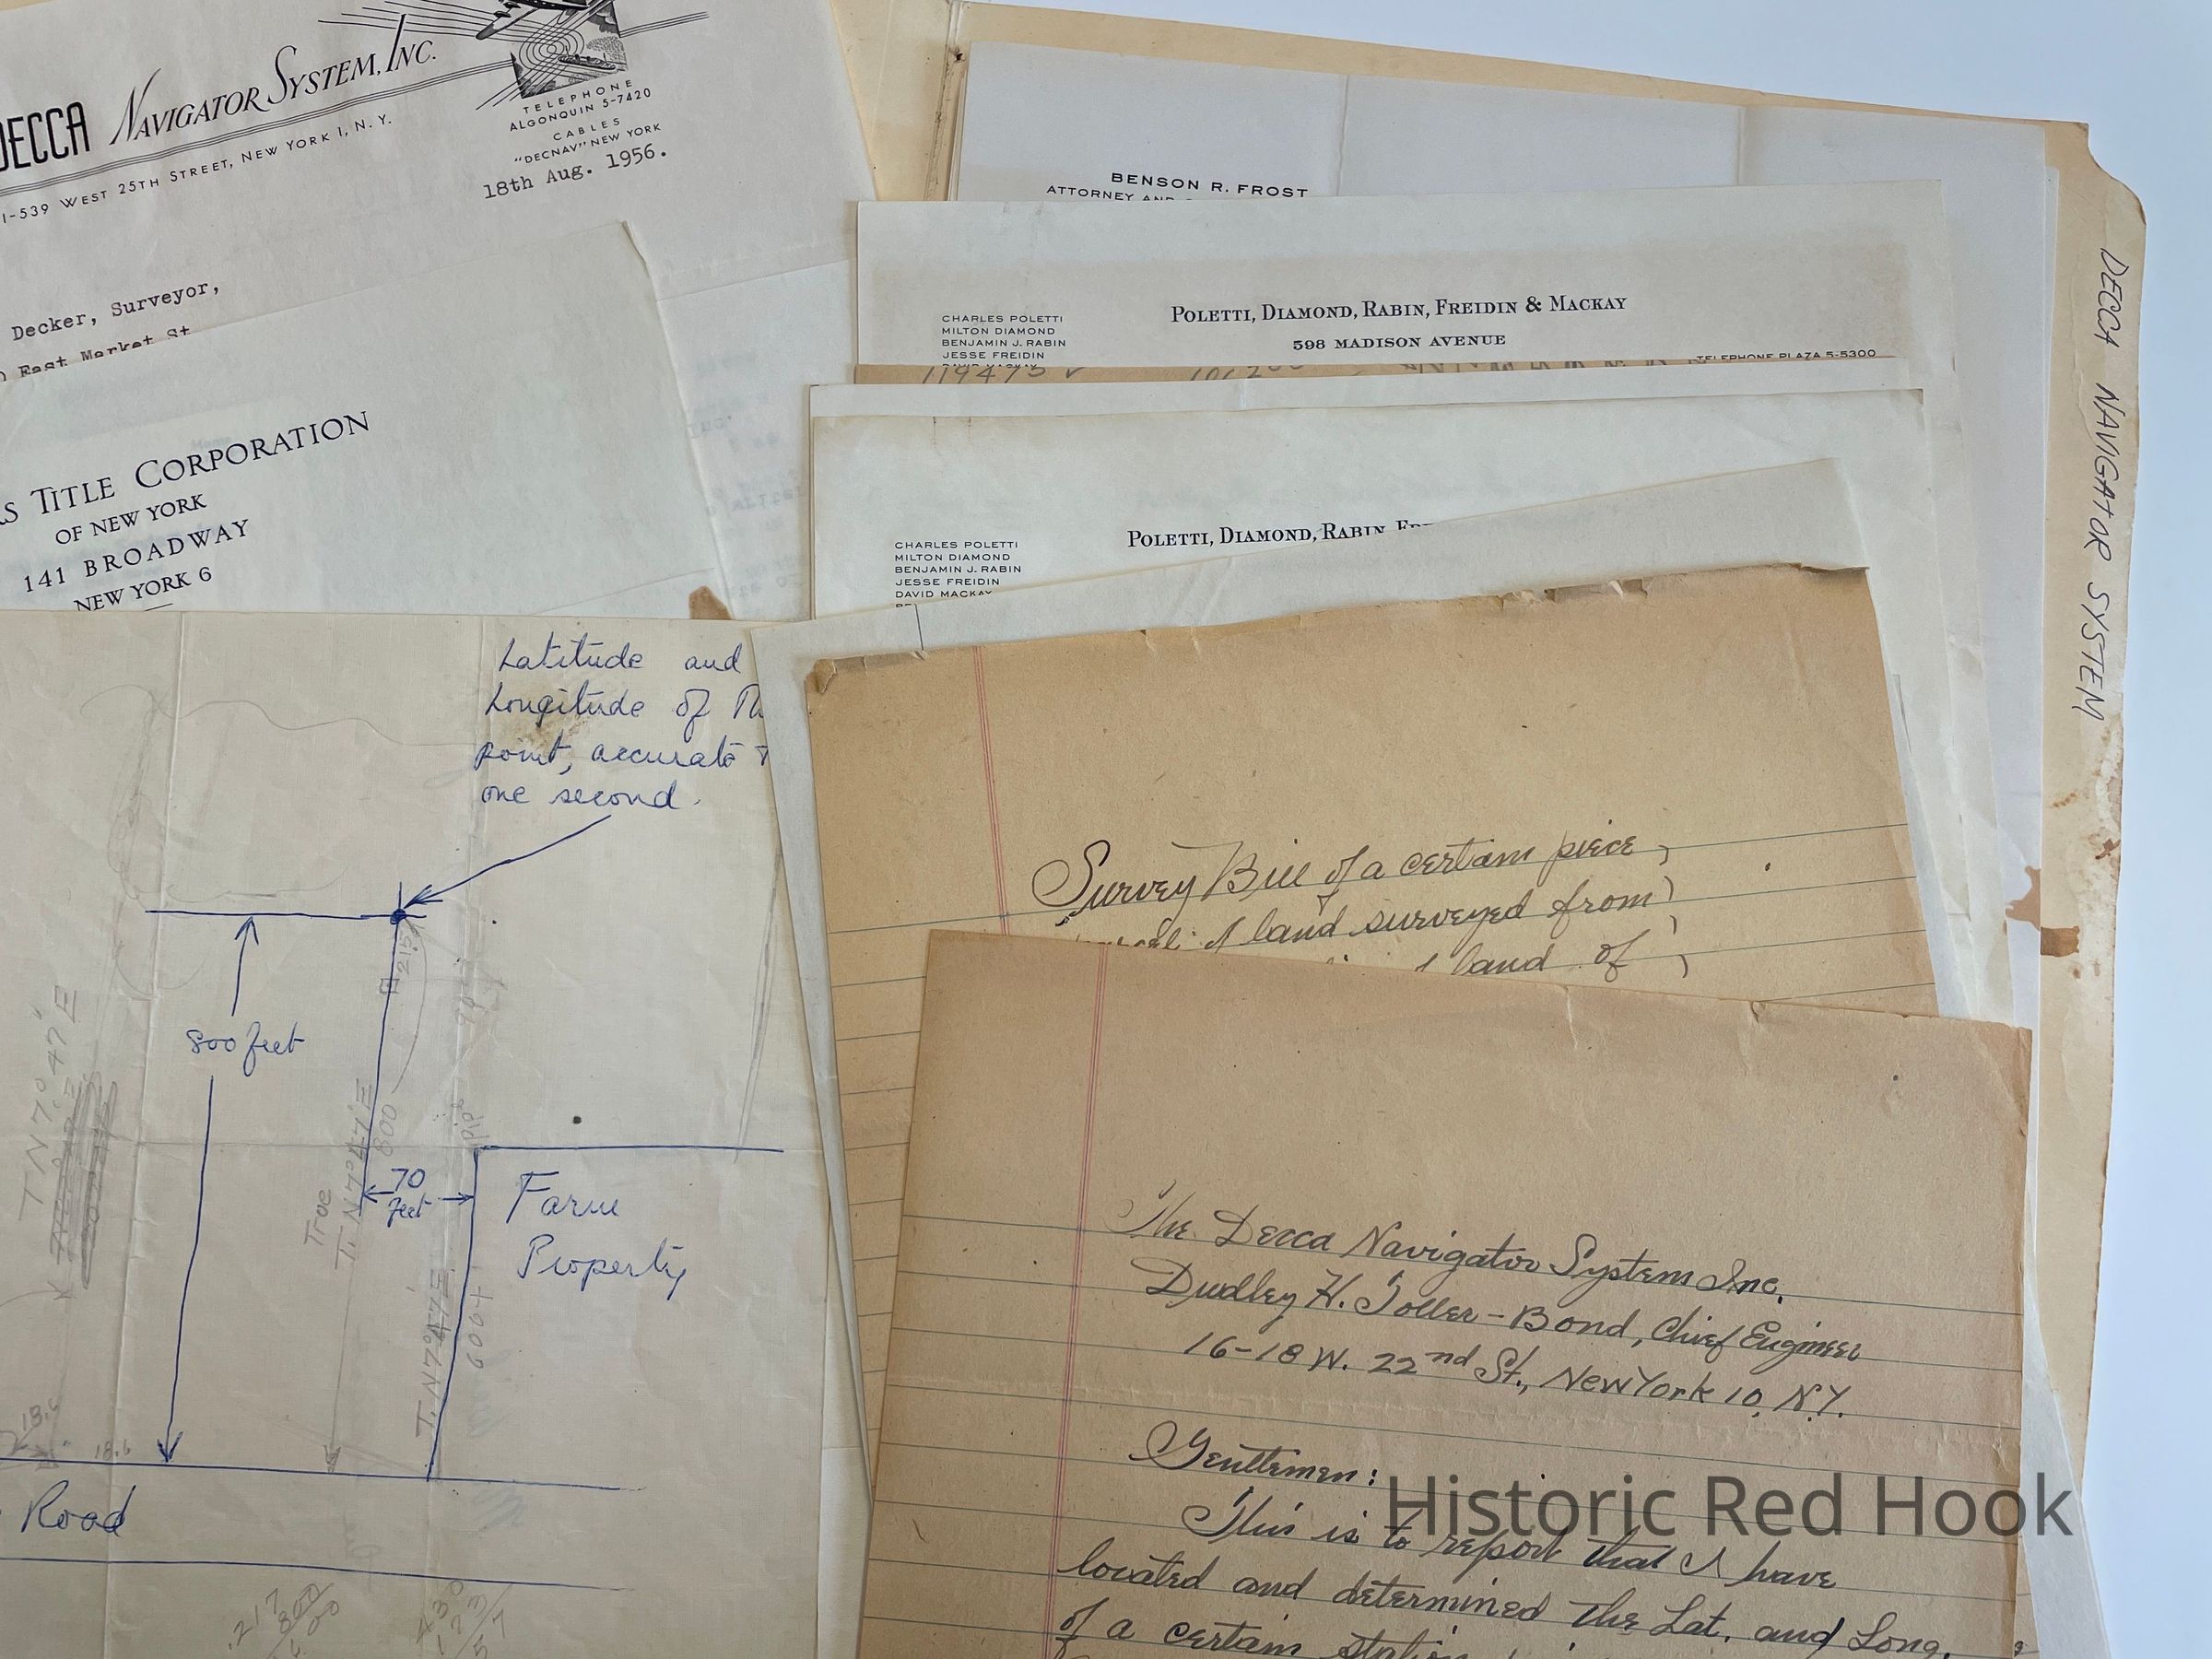 DECCA NAVIGATOR SYSTEM, INC.
1-539 WEST 25TH STREET, NEW YORK 1, N. Y.
TELEPHONE
ALGONQUIN 5-7420
CABLES
"DECNAV" NEW YORK
18th Aug. 1956.
Decker, Surveyor,
East Market St
TITLE CORPORATION
OF NEW YORK
141 BROADWAY
NEW YORK 6
BENSON R. FROST
ATTORNEY AND
POLETTI, DIAMOND, RABIN, FREIDIN & MACKAY
598 MADISON AVENUE
TELEPHONE PLAZA 5-5300
CHARLES POLETTI
MILTON DIAMOND
BENJAMIN J. RABIN
JESSE FREIDIN
DAVID MACKAY
119475 ✓
POLETTI, DIAMOND, RABIN
CHARLES POLETTI
MILTON DIAMOND
BENJAMIN J. RABIN
JESSE FREIDIN
DAVID MACKAY
DECCA NAVIGATOR SYSTEM
Latitude and
Longitude of
point, accurate
one second.
800 feet
70
feet
Farm
Property
Road
TN 7° 47' E
True
T. N 7° 47' E
800
T. N 7° 47' E
600+
pipe
18.6
.217
800
430
Survey Bill of a certain piece
of land surveyed from
land of
The Decca Navigator System Inc.
Dudley H. Toller-Bond, Chief Engineer
16-18 W. 22nd St., New York 10, N.Y.
Gentlemen:
This is to report that I have
located and determined the Lat. and Long.
of a certain station
Historic Red Hook